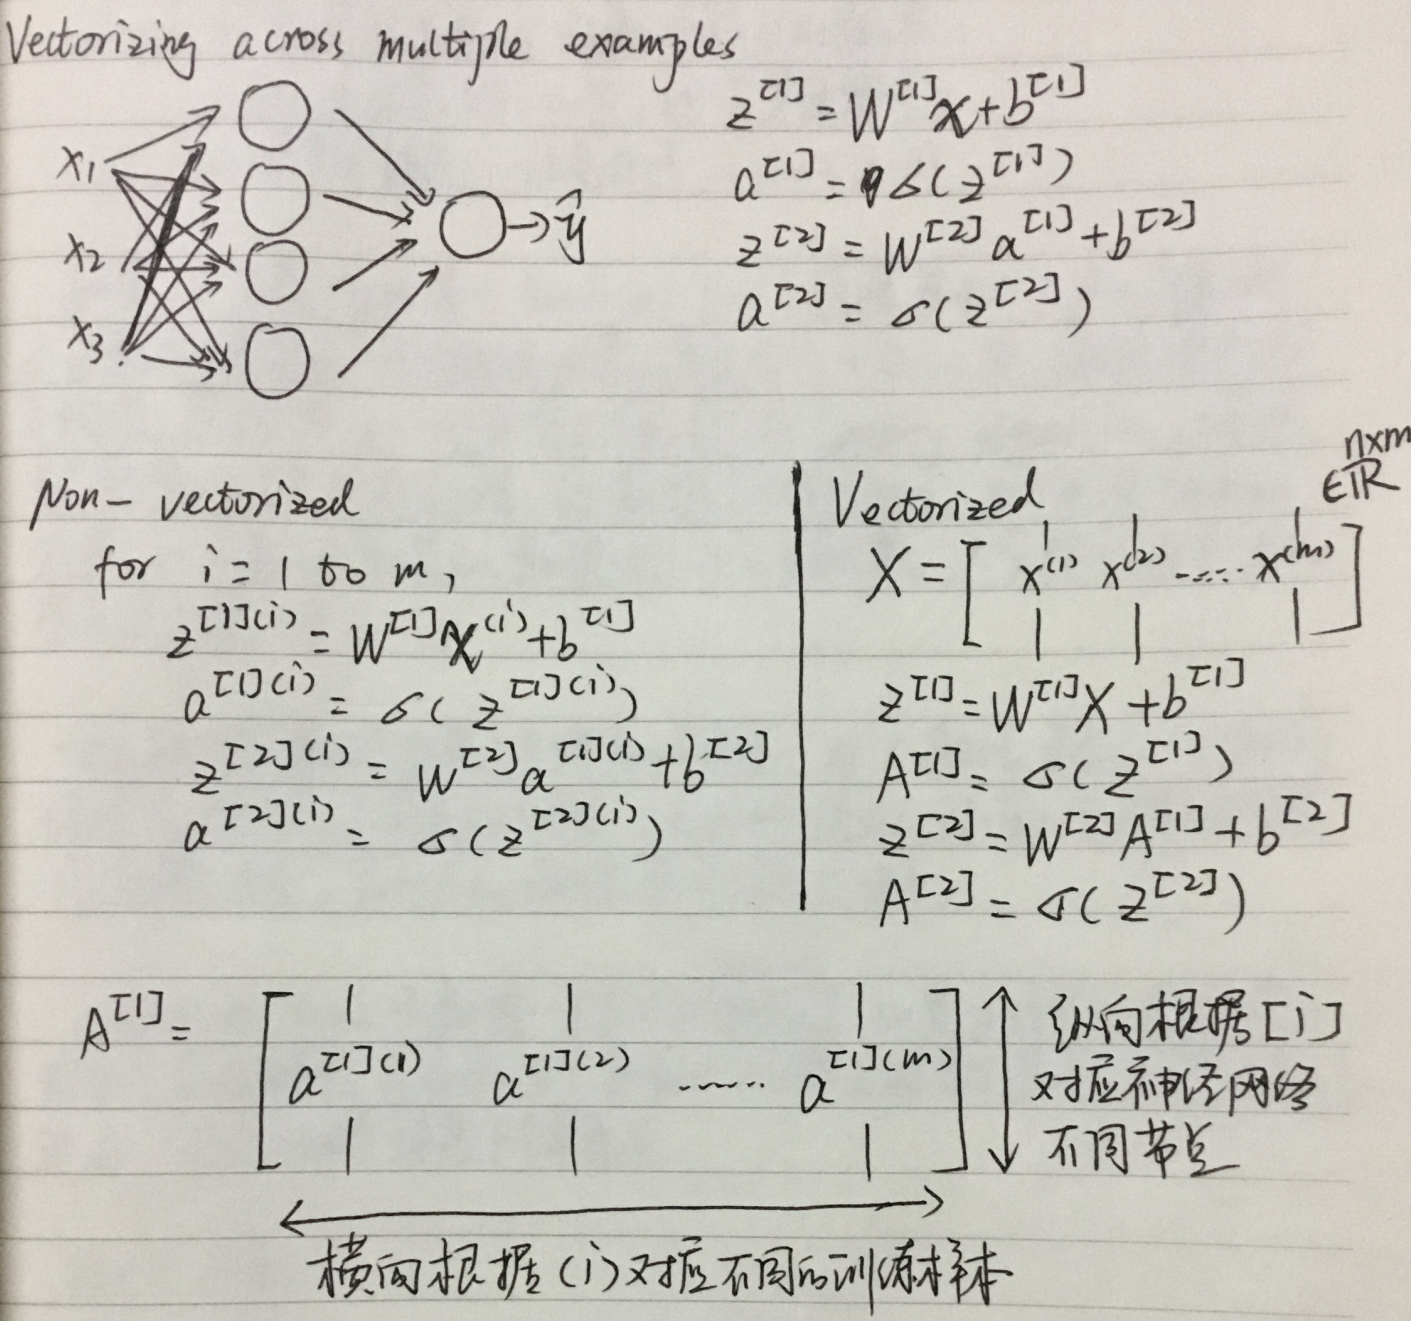 Vectorizing across multiple examples
x₁
x₂
x₃
ŷ
z^[1] = W^[1]x + b^[1]
a^[1] = σ(z^[1])
z^[2] = W^[2]a^[1] + b^[2]
a^[2] = σ(z^[2])
Non-vectorized
for i = 1 to m,
z^[1](i) = W^[1]x^(i) + b^[1]
a^[1](i) = σ(z^[1](i))
z^[2](i) = W^[2]a^[1](i) + b^[2]
a^[2](i) = σ(z^[2](i))
Vectorized
X = [x^(1) x^(2) ...... x^(m)] ∈ ℝ^n×m
z^[1] = W^[1]X + b^[1]
A^[1] = σ(z^[1])
z^[2] = W^[2]A^[1] + b^[2]
A^[2] = σ(z^[2])
A^[1] = [a^[1](1) a^[1](2) ...... a^[1](m)]
纵向根据[i]
对应神经网络
不同节点
横向根据(i)对应不同的训练样本